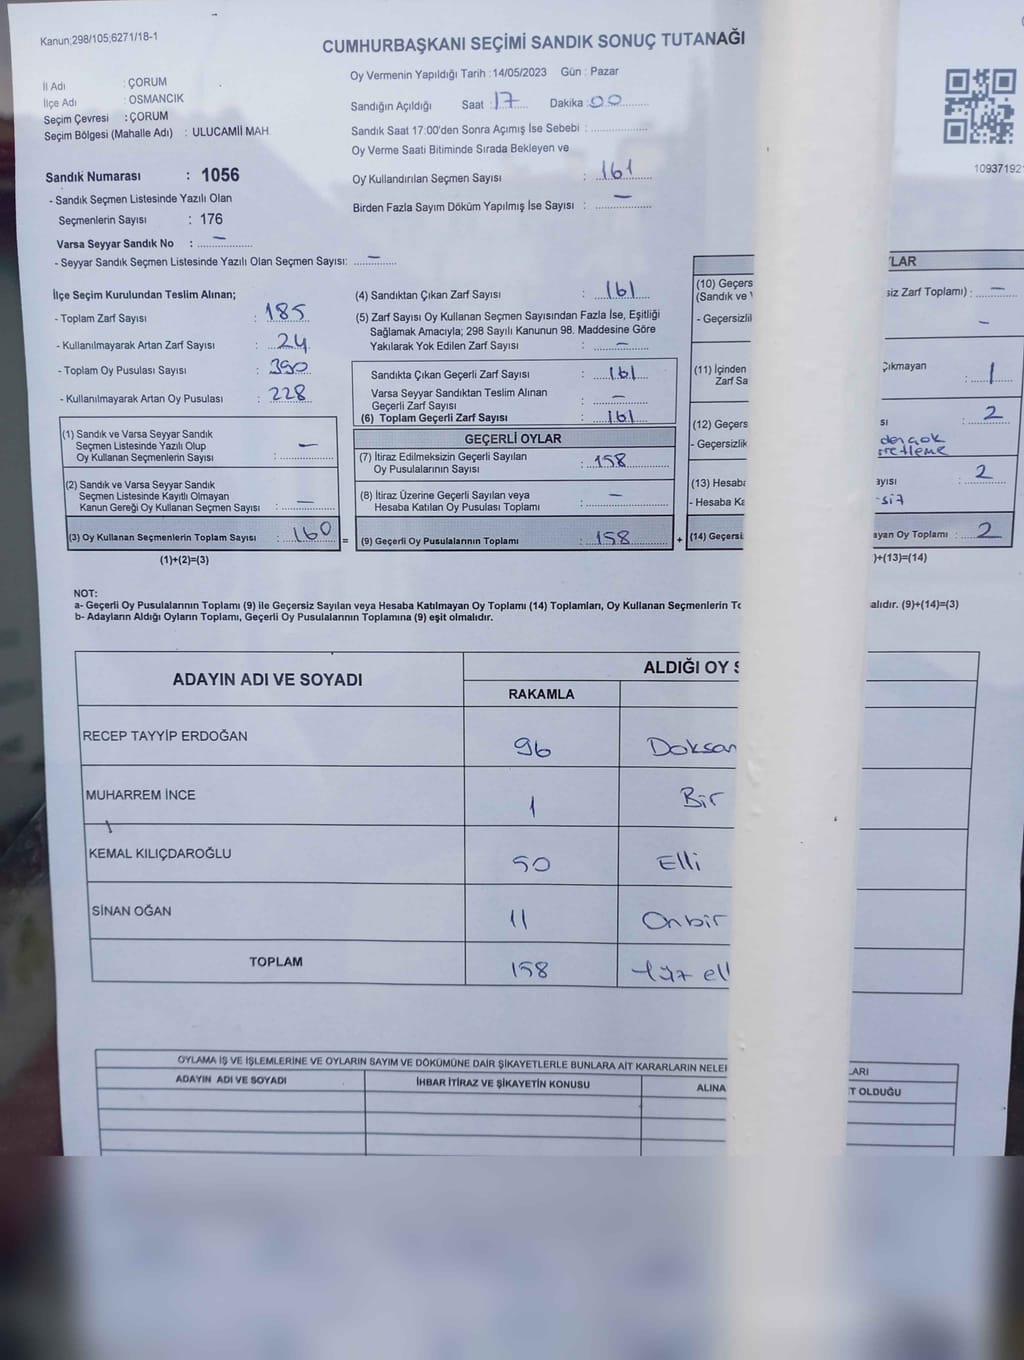 Kanun;298/105;6271/18-1
CUMHURBAŞKANI SEÇİMİ SANDIK SONUÇ TUTANAĞI
İl Adı : ÇORUM
İlçe Adı : OSMANCIK
Seçim Çevresi : ÇORUM
Seçim Bölgesi (Mahalle Adı) : ULUCAMİİ MAH.
Oy Vermenin Yapıldığı Tarih : 14/05/2023 Gün : Pazar
Sandığın Açıldığı Saat : 17 Dakika : 00
Sandık Saat 17:00'den Sonra Açımış İse Sebebi :
Oy Verme Saati Bitiminde Sırada Bekleyen ve
Oy Kullandırılan Seçmen Sayısı : 161
Birden Fazla Sayım Döküm Yapılmış İse Sayısı : —
10937192
Sandık Numarası : 1056
- Sandık Seçmen Listesinde Yazılı Olan
Seçmenlerin Sayısı : 176
Varsa Seyyar Sandık No : —
- Seyyar Sandık Seçmen Listesinde Yazılı Olan Seçmen Sayısı: —
İlçe Seçim Kurulundan Teslim Alınan;
- Toplam Zarf Sayısı : 185
- Kullanılmayarak Artan Zarf Sayısı : 24
- Toplam Oy Pusulası Sayısı : 390
- Kullanılmayarak Artan Oy Pusulası : 228
(1) Sandık ve Varsa Seyyar Sandık
Seçmen Listesinde Yazılı Olup
Oy Kullanan Seçmenlerin Sayısı : —
(2) Sandık ve Varsa Seyyar Sandık
Seçmen Listesinde Kayıtlı Olmayan
Kanun Gereği Oy Kullanan Seçmen Sayısı : —
(3) Oy Kullanan Seçmenlerin Toplam Sayısı : 160 =
(1)+(2)=(3)
(4) Sandıktan Çıkan Zarf Sayısı : 161
(5) Zarf Sayısı Oy Kullanan Seçmen Sayısından Fazla İse, Eşitliği
Sağlamak Amacıyla; 298 Sayılı Kanunun 98. Maddesine Göre
Yakılarak Yok Edilen Zarf Sayısı : —
Sandıkta Çıkan Geçerli Zarf Sayısı : 161
Varsa Seyyar Sandıktan Teslim Alınan
Geçerli Zarf Sayısı : —
(6) Toplam Geçerli Zarf Sayısı : 161
GEÇERLİ OYLAR
(7) İtiraz Edilmeksizin Geçerli Sayılan
Oy Pusulalarının Sayısı : 158
(8) İtiraz Üzerine Geçerli Sayılan veya
Hesaba Katılan Oy Pusulası Toplamı : —
(9) Geçerli Oy Pusulalarının Toplamı : 158 +
LAR
(10) Geçers
(Sandık ve siz Zarf Toplamı) : —
- Geçersizli —
(11) İçinden Çıkmayan
Zarf Sa : 1
(12) Geçers sı : 2
- Geçersizlik
(13) Hesaba ayısı : 2
- Hesaba Ka
(14) Geçersi ayan Oy Toplamı : 2
)+(13)=(14)
NOT:
a- Geçerli Oy Pusulalarının Toplamı (9) ile Geçersiz Sayılan veya Hesaba Katılmayan Oy Toplamı (14) Toplamları, Oy Kullanan Seçmenlerin To alıdır. (9)+(14)=(3)
b- Adayların Aldığı Oyların Toplamı, Geçerli Oy Pusulalarının Toplamına (9) eşit olmalıdır.
ADAYIN ADI VE SOYADI ALDIĞI OY S
RAKAMLA
RECEP TAYYİP ERDOĞAN 96 Doksan
MUHARREM İNCE 1 Bir
KEMAL KILIÇDAROĞLU 50 Elli
SİNAN OĞAN 11 Onbir
TOPLAM 158 Yüz ell
OYLAMA İŞ VE İŞLEMLERİNE VE OYLARIN SAYIM VE DÖKÜMÜNE DAİR ŞİKAYETLERLE BUNLARA AİT KARARLARIN NELER LARI
ADAYIN ADI VE SOYADI İHBAR İTİRAZ VE ŞİKAYETİN KONUSU ALINA T OLDUĞU